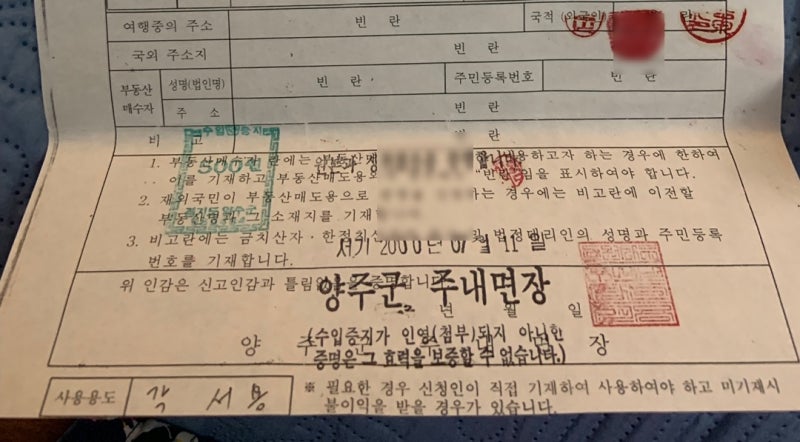 여행중의 주소 빈 란 국적 (외국인) 란
국외 주소지 빈 란
부동산 매수자 성명(법인명) 빈 란 주민등록번호 빈 란
주 소 빈 란
비 고 빈 란
수입증지
500원
1. 부동산매수자 란에는 부동산 사용하고자 하는 경우에 한하여
이를 기재하고 부동산매도용 "빈란"임을 표시하여야 합니다.
2. 재외국민이 부동산매도용으로 하는 경우에는 비고란에 이전할
부동산명과 그 소재지를 기재
3. 비고란에는 금치산자·한정치산 및 법정대리인의 성명과 주민등록
번호를 기재합니다.
서기 2000년 07월 11일
위 인감은 신고인감과 틀림없 증명합니다
년 월 일
양주군 주내면장
양 주 장
(수입증지가 인영(첨부)되지 아니한
증명은 그 효력을 보증할 수 없습니다.)
사용용도 각 서 용
※ 필요한 경우 신청인이 직접 기재하여 사용하여야 하고 미기재시
불이익을 받을 경우가 있습니다.